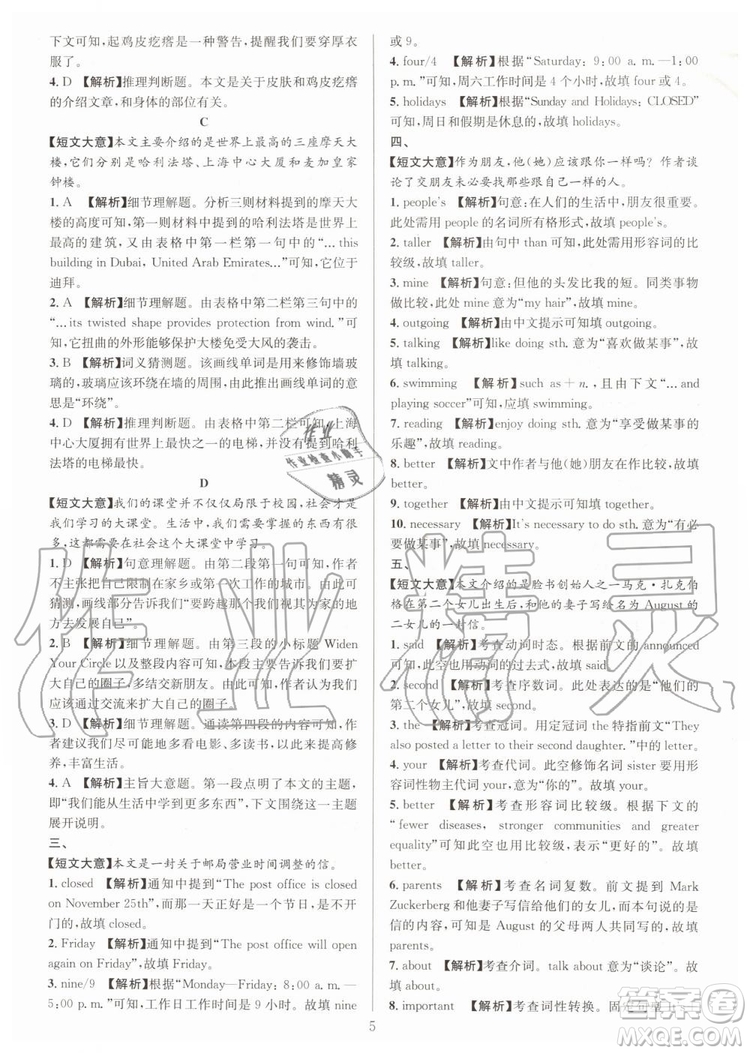 下文可知，起鸡皮疙瘩是一种警告，提醒我们要穿厚衣
服了。
4. D 【解析】推理判断题。本文是关于皮肤和鸡皮疙瘩
的介绍文章，和身体的部位有关。
C
【短文大意】本文主要介绍的是世界上的三座摩天大
楼，它们分别是哈利法塔、上海中心大厦和麦加皇家
钟楼。
1. A 【解析】细节理解题。分析三则材料提到的摩天大
楼的高度可知，第一则材料中提到的哈利法塔是世界上
最高的建筑，又由表格中第一栏第一句中的“…this
building in Dubai, United Arab Emirates…”可知，它位于
迪拜。
2. A 【解析】细节理解题。由表格中第二栏第三句中的
“…its twisted shape provides protection from wind.”可
知，它扭曲的外形能够保护大楼免受大风的袭击。
3. B 【解析】词义猜测题。该画线单词是用来修饰墙玻
璃的，玻璃应该环绕在墙的周围，由此可知，该单词意思
为“环绕的”。
4. B 【解析】推理判断题。由表格中第二栏可知，上海
中心大厦拥有世界上最快的电梯，由此可推知，哈利
法塔的电梯最快。
D
【短文大意】我们的课堂并不仅仅局限于校园，社会也
是我们学习的大课堂。生活中，我们要掌握的东西有很
多，这都需要在社会这个大课堂中学习。
1. D 【解析】句意理解题。由第二段第一句可知，作者
不可能一直住在家乡或者第一次工作的城市。由此可
猜测，画线部分告诉我们“要跨越那个我们居住的地
方去发展自己”。
2. D 【解析】细节理解题。由第三段的小标题 Widen
Your Circle以及通读第三段的内容可知，我们要扩大
自己的圈子，多结交新朋友。由此可知，选D，扩大自
己的圈子。
3. D 【解析】细节理解题。通读第四段的内容可知，本
段主要讲的是我们应该多地看电影、多读书，多旅行，
丰富生活。
4. A 【解析】主旨大意题。第一段点明了本文的主题，
即“我们能从生活中学到更多东西”，下文围绕这一主题
展开说明。
三、
【短文大意】本文是一封关于邮局营业时间调整的信。
1. closed 【解析】通知中写道“The post office is closed
on November 25th”可知，而那一天正好是一个节日，不
开门，故填 closed。
2. Friday 【解析】通知中写道“The post office will open
again on Friday”可知，故填 Friday。
3. nine/9 【解析】根据“Monday–Friday: 8:00 a.m.—
5:00 p.m.”可知，工作日工作时间是9个小时，故填 nine
或 9。
4. four/4 【解析】根据“Saturday: 9:00 a.m.—1:00
p.m.”可知，周六工作时间是4个小时，故填 four 或 4。
5. holidays 【解析】根据“Sunday and Holidays: CLOSED”
可知，周日和假日是休息的，故填 holidays。
四、
【短文大意】作为朋友，他（她）应该跟你一样吗？作者谈
论了交朋友未必要交跟自己一样的朋友。
1. people's 【解析】句意：在人们的生活中，朋友很重要。
此处需用 people 的名词所有格形式，故填 people's。
2. taller 【解析】由句中 than 可知，此处需用形容词的比
较级，故填 taller。
3. mine 【解析】句意：但他的头发比我的短。同类事物
做比较，此处 mine 意为“my hair”，故填 mine。
4. outgoing 【解析】由中文提示可知填 outgoing。
5. talking 【解析】like doing sth. 意为“喜欢做某事”，故
填 talking。
6. swimming 【解析】such as + n.，且由下文“…and
playing soccer”可知，应填 swimming。
7. reading 【解析】enjoy doing sth. 意为“享受做某事的
乐趣”，故填 reading。
8. better 【解析】文中作者与他（她）朋友作比较，因此用
比较级，故填 better。
9. together 【解析】由中文提示可知填 together。
10. necessary 【解析】It's necessary to do sth. 意为“有必
要做某事”，故填 necessary。
五、
【短文大意】本文介绍的是脸书创始人之一马克·扎克伯
格在第二个女儿出生后，和他的妻子写给名为 August 的
二女儿的一封信。
1. said 【解析】考查动词时态。由前文动词时态可知，
此空也用动词的过去式，故填 said。
2. second 【解析】考查序数词。此处意为“他们的
第二个女儿”，故填 second。
3. the 【解析】考查冠词。用定冠词 the 特指前文“They
also posted a letter to their second daughter.”中的信。
4. your 【解析】考查代词。此空修饰名词 sister 要用形
容词性物主代词 your，意为“你的”。故填 your。
5. better 【解析】考查形容词比较级。根据下文的
“fewer diseases, stronger communities and greater
equality”可知，此处也要用比较级，故填
better。
6. parents 【解析】考查名词复数。前文提到 Mark
Zuckerberg 和他妻子写信给他们的女儿，而本句说的是
信的内容，可知是 August 的父母两人共同写的，故填
parents。
7. about 【解析】考查介词。talk about 意为“谈论”，
故填 about。
8. important 【解析】考查词性转换。
5
作业精灵
答案卷